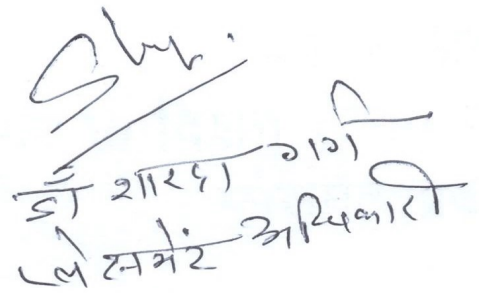 डॉ शारदा गर्ग
प्लेसमेंट अधिकारी